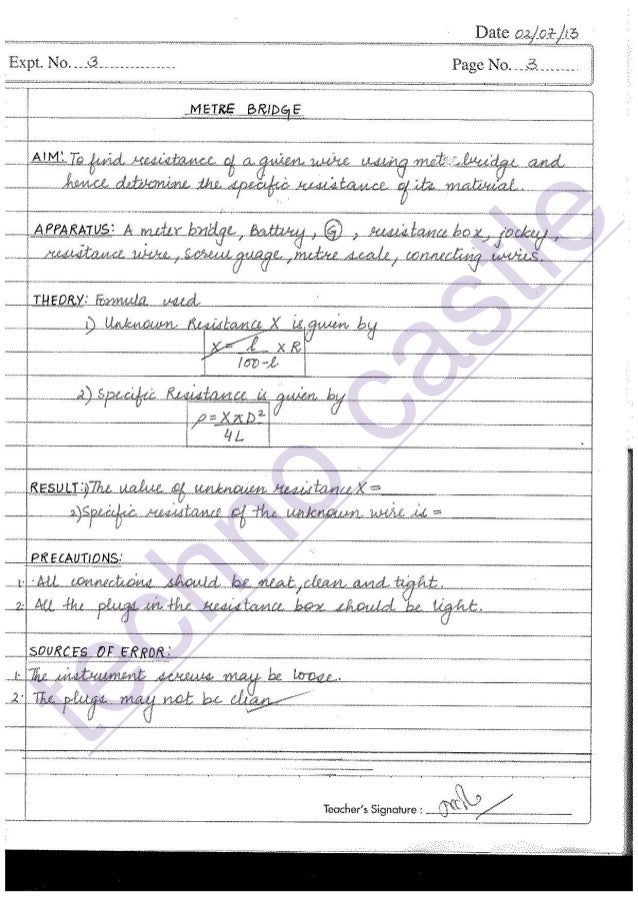 Date 02/07/13
Expt. No. 3
Page No. 3
METRE BRIDGE
AIM: To find resistance of a given wire using metre bridge and
hence determine the specific resistance of its material.
APPARATUS: A meter bridge, Battery, G, resistance box, jockey,
resistance wire, screw guage, metre scale, connecting wires.
THEORY: Formula used
i) Unknown Resistance X is given by
X = l × R
100-l
2) Specific Resistance is given by
ρ = XπD²
4L
RESULT: 1) The value of unknown resistance X =
2) Specific resistance of the unknown wire is =
PRECAUTIONS:
1. All connections should be neat, clean and tight.
2. All the plugs in the resistance box should be tight.
SOURCES OF ERROR:
1. The instrument screws may be loose.
2. The plugs may not be clean
Teacher's Signature :
techno castle